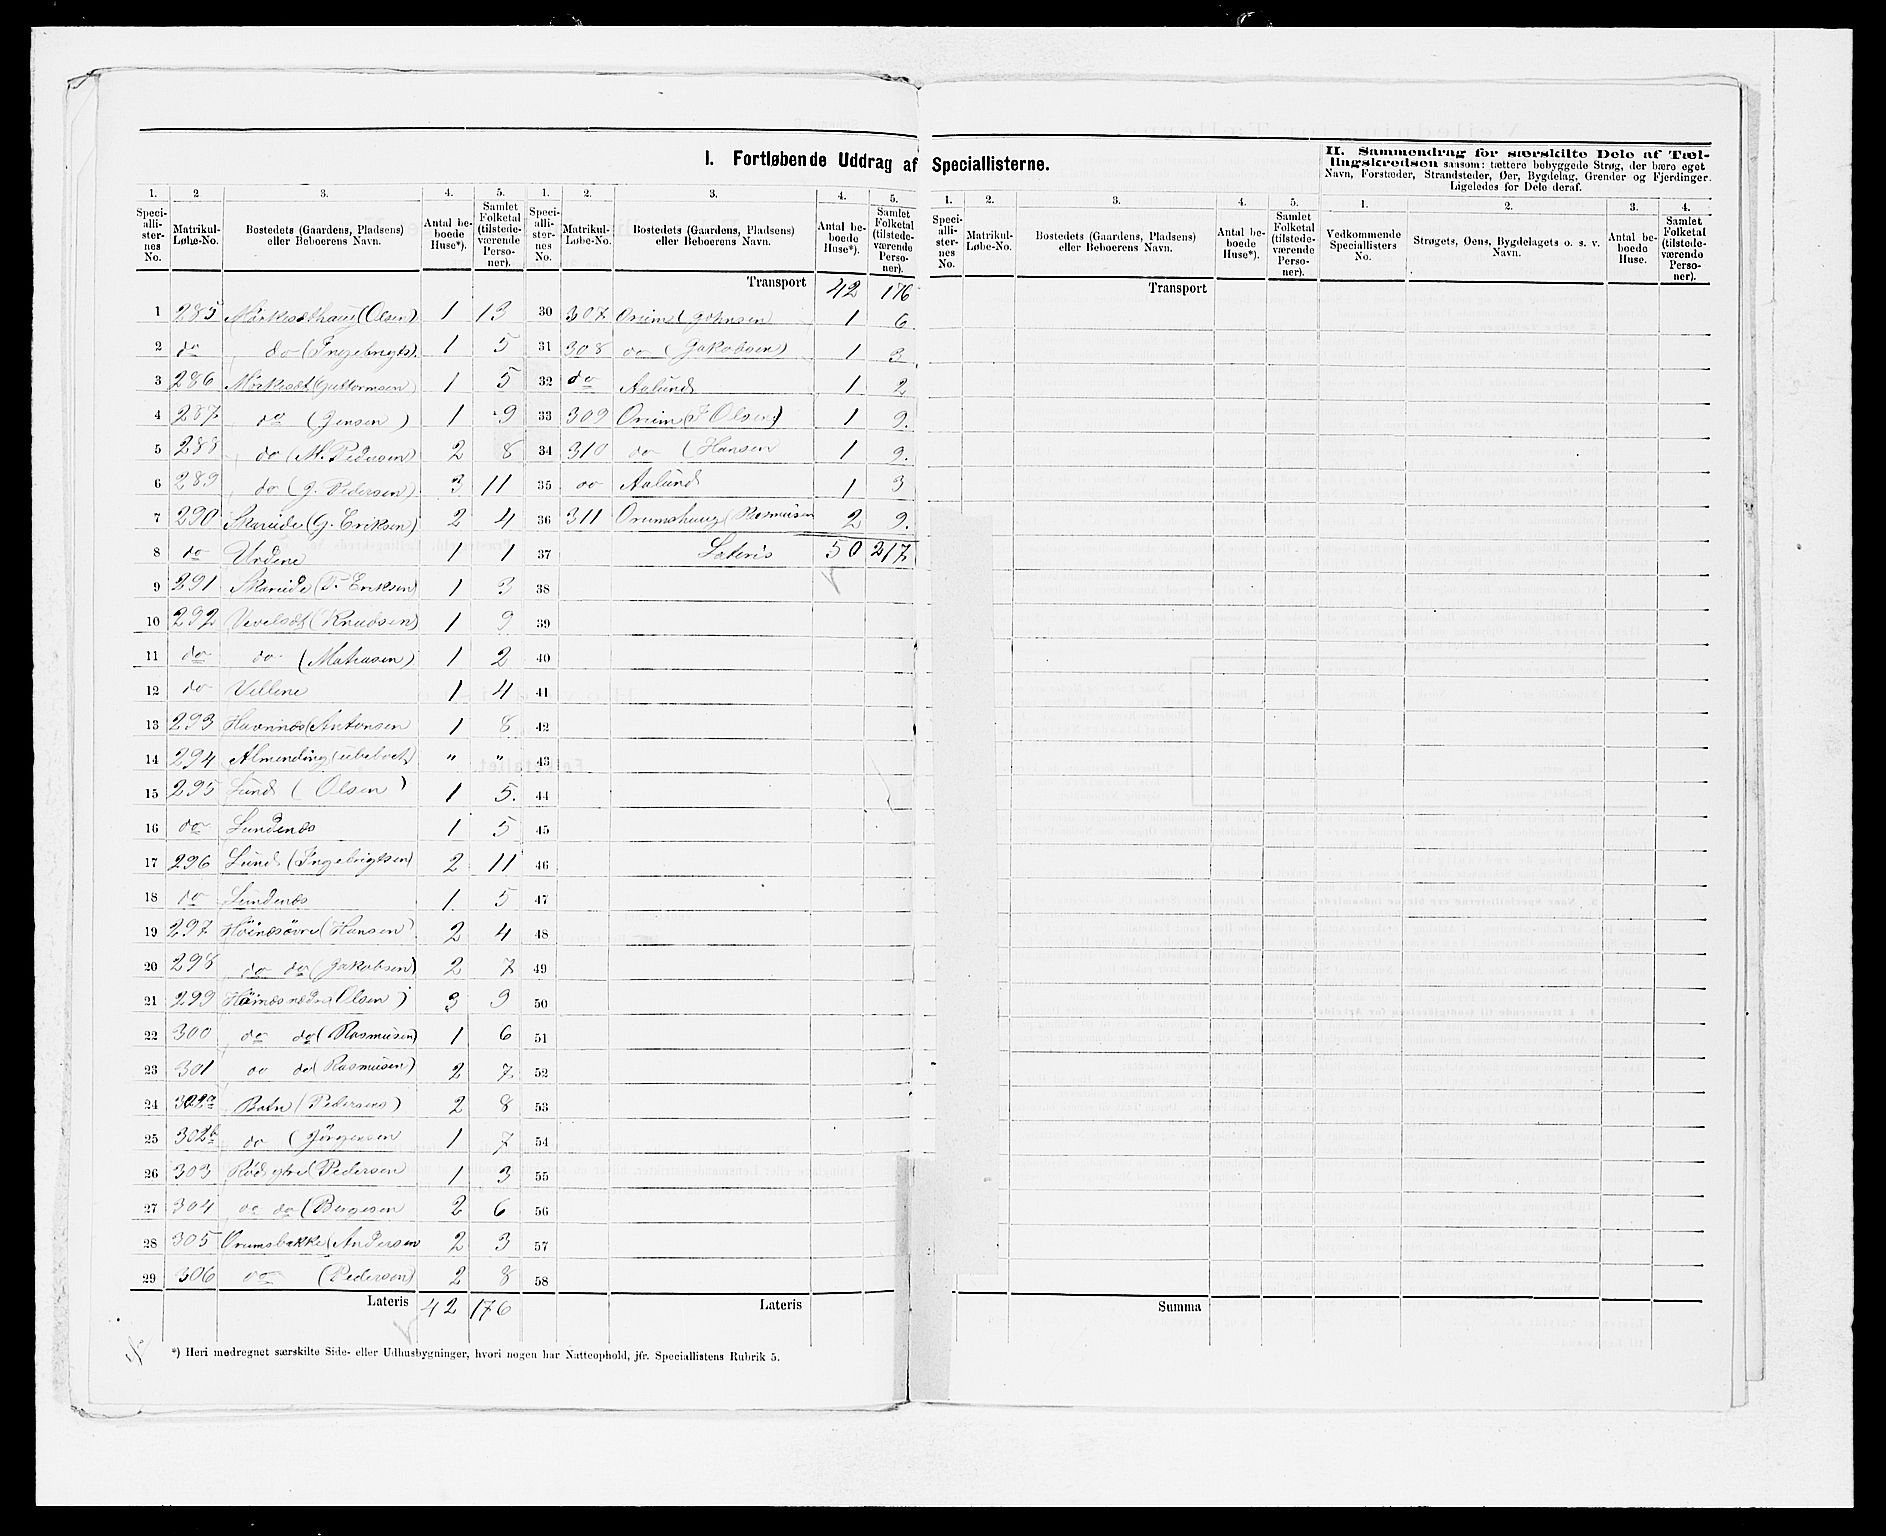 I. Fortløbende Uddrag af Speciallisterne.
II. Sammendrag for særskilte Dele af Tæl-
lingskredsen saasom: tættere bebyggede Strøg, der bære eget
Navn, Forstæder, Strandsteder, Øer, Bygdelag, Grender og Fjerdinger.
Ligeledes for Dele deraf.
1. 2 3. 4. 5. 1. 2. 3. 4. 5. 1. 2. 3. 4. 5. 1. 2. 3. 4.
Speci-alli-ster-nes No. Matrikul-Løbe-No. Bostedets (Gaardens, Pladsens) eller Beboerens Navn. Antal be-boede Huse*). Samlet Folketal (tilstede-værende Perso-ner).
Speci-alli-ster-nes No. Matrikul-Løbe-No. Bostedets (Gaardens, Pladsens) eller Beboerens Navn. Antal be-boede Huse*). Samlet Folketal (tilstede-værende Perso-ner).
Speci-alli-ster-nes No. Matrikul-Løbe-No. Bostedets (Gaardens, Pladsens) eller Beboerens Navn. Antal be-boede Huse*). Samlet Folketal (tilstede-værende Perso-ner).
Vedkommende Speciallisters No. Strøgets, Øens, Bygdelagets o. s. v. Navn. Antal be-boede Huse. Samlet Folketal (tilstede-værende Perso-ner).
Transport 42 176
Transport
1 285 Mörkisethaug (Olsen) 1 13
2 do do (Ingebrigts) 1 5
3 286 Mörkiset (Guttormsen) 1 5
4 287 do (Jensen) 1 9
5 288 do (M. Pedersen) 2 8
6 289 do (J. Pedersen) 3 11
7 290 Skareide (G. Eriksen) 2 4
8 do Urdene 1 1
9 291 Skareide (P. Eriksen) 1 3
10 292 Vevelset (Knudsen) 1 9
11 do do (Mathisen) 1 2
12 do Vellene 1 4
13 293 Havnnæs (Antonsen 1 8
14 294 Almending (ubeboet) " "
15 295 Lund (Olsen) 1 5.
16 do Lundenes 1 5
17 296 Lund (Ingebrigtsen) 2 11
18 do Lundenes 1. 5
19 297 Höinesövre (Hansen) 2 4
20 298 do do (Jakobsen) 2 7
21 299 Höines nedre (Olsen) 3 9
22 300 do do (Rasmusen) 1 6
23 301 do do (Rasmusen) 2 7
24 302a Batn (Pedersens) 2 8
25 302b do (Jörgensen 1 7
26 303 Röd ytre (Pedersen 1 3
27 304 do do (Birgesen 2 6
28 305 Orumsbakke (Andersen 2 3
29 306 do (Pedersen) 2 8
Lateris 42 176
30 307 Orum (Johnsen 1 6
31 308 do (Jakobsen) 1 3
32 do Aalund 1 2
33 309 Orum (J Olsen) 1 9.
34 310 do (Hansen 1 9.
35 do Aalund 1 3
36 311 Orumshaug (Rasmusen 2 9.
37 Lateris 50 217
38
39
40
41
42
43
44
45
46
47
48
49
50
51
52
53
54
55
56
57
58
Lateris
Summa
*) Heri medregnet særskilte Side- eller Udhusbygninger, hvori nogen har Natteophold, jfr. Speciallistens Rubrik 5.